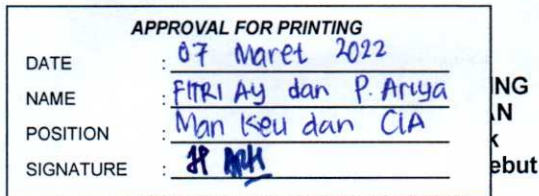 APPROVAL FOR PRINTING
DATE : 07 Maret 2022
NAME : FITRI Ay dan P. Ariya
ING
POSITION : Man Keu dan CIA
AN
k
SIGNATURE :
ebut